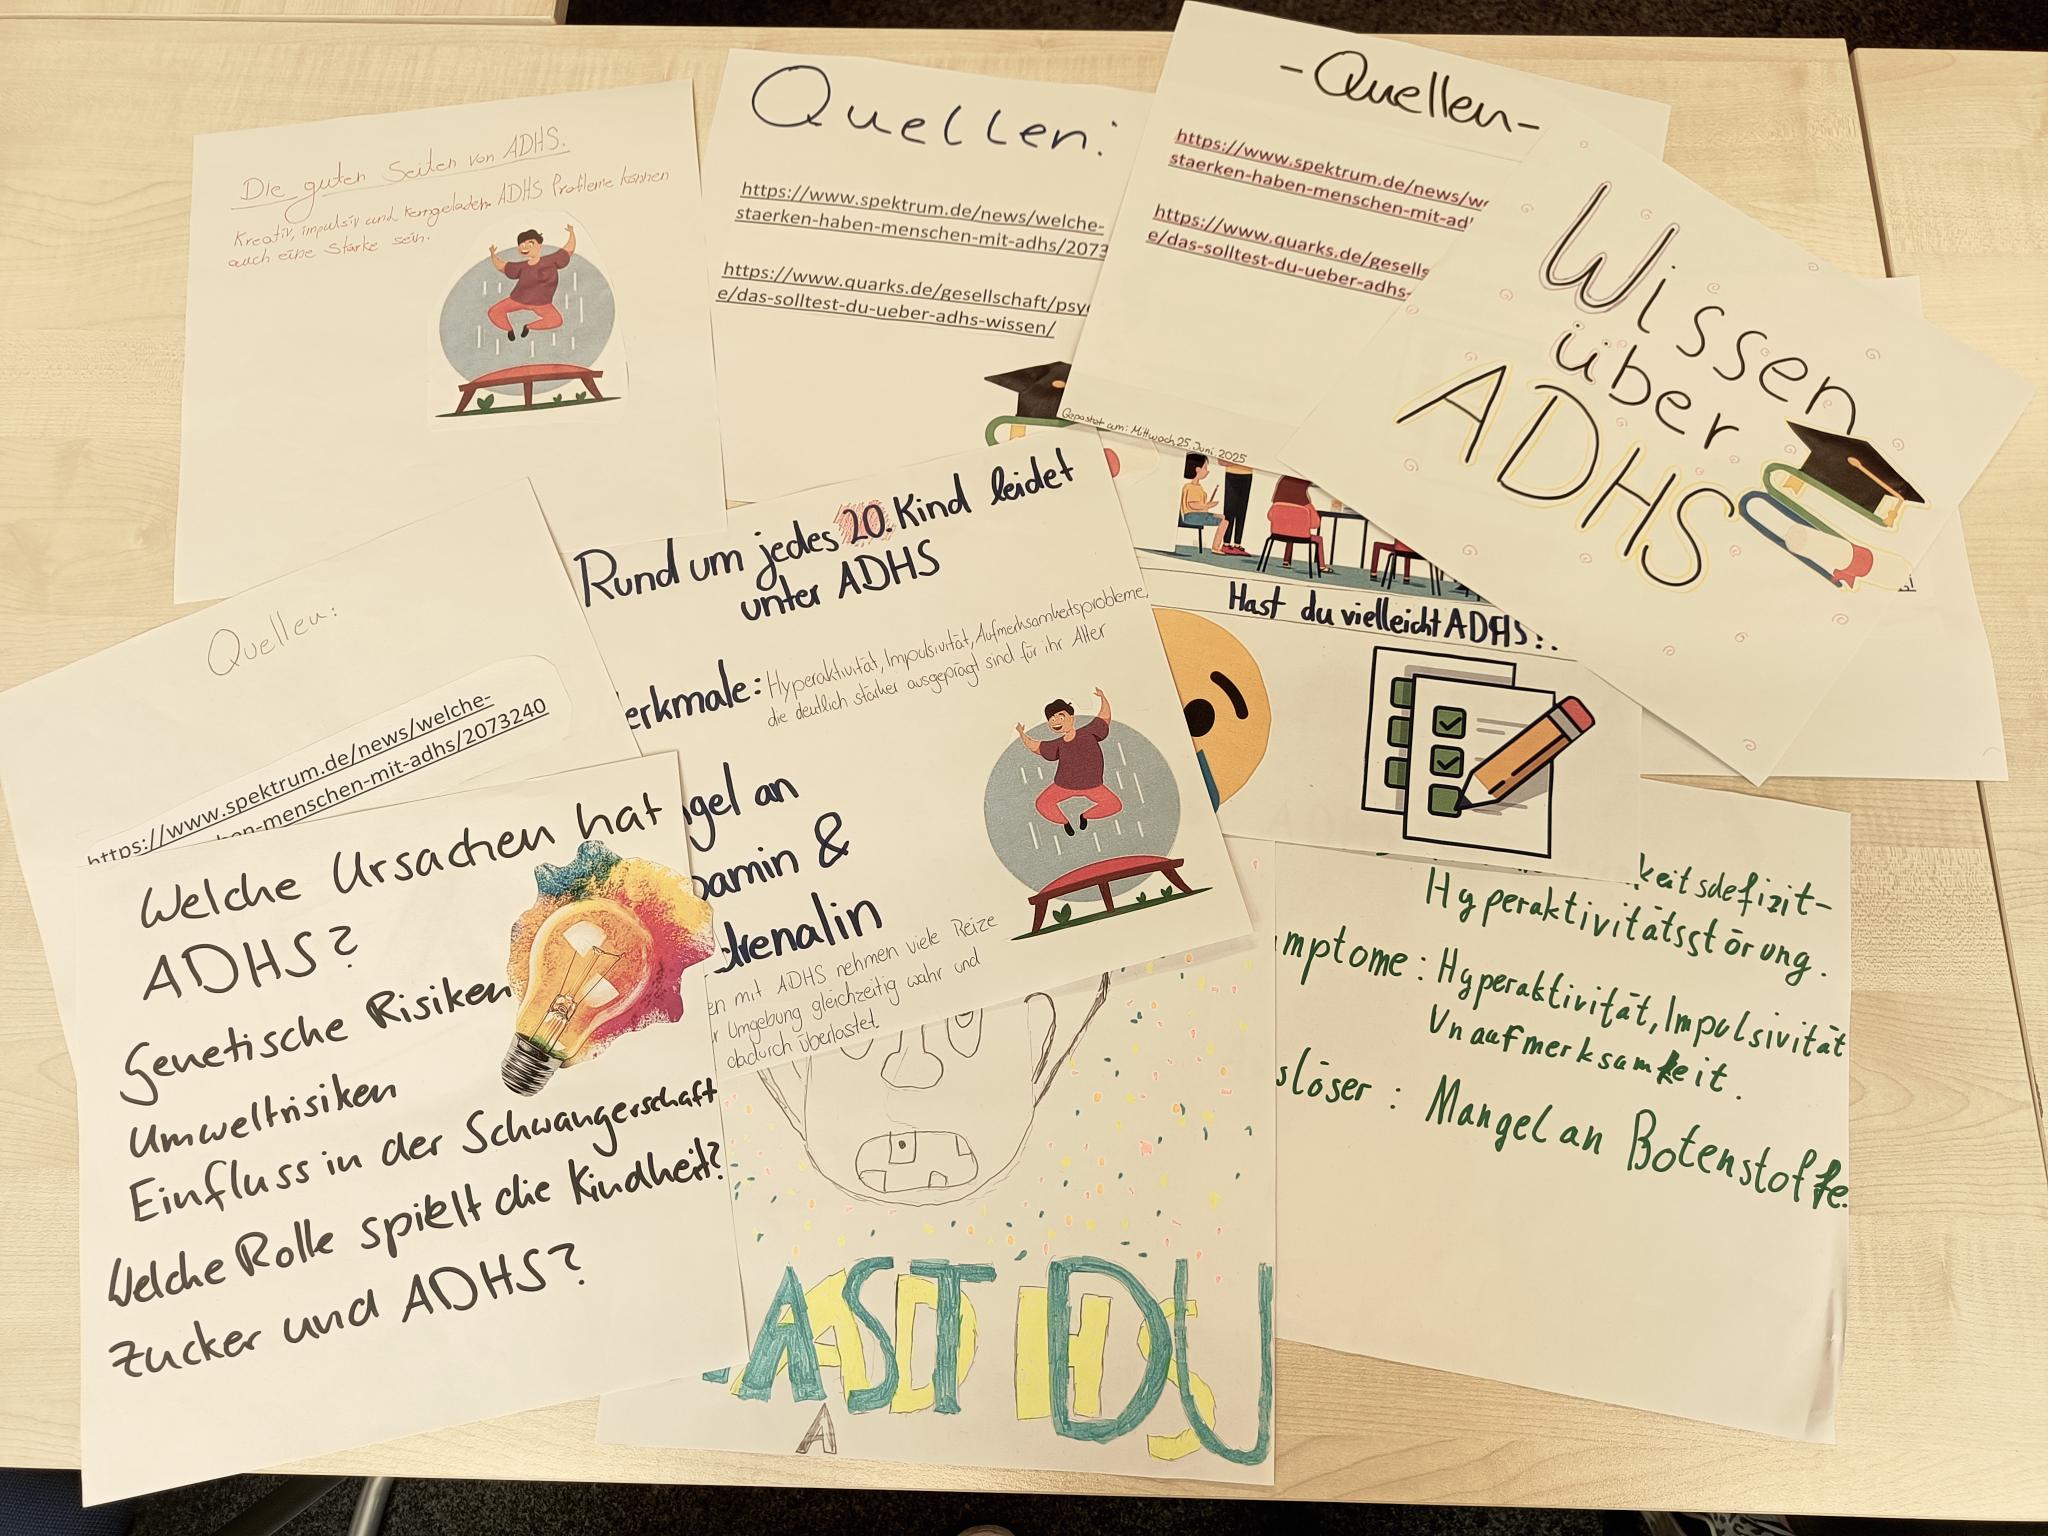 Die guten Seiten von ADHS.
Kreativ, impulsiv und kerngeladen. ADHS Probleme können
auch eine Stärke sein.
Quellen:
https://www.spektrum.de/news/welche-
staerken-haben-menschen-mit-adhs/2073
https://www.quarks.de/gesellschaft/psy
e/das-solltest-du-ueber-adhs-wissen/
-Quellen-
https://www.spektrum.de/news/we
staerken-haben-menschen-mit-ad
https://www.quarks.de/gesells
e/das-solltest-du-ueber-adhs-
Gepostet am: Mittwoch 25 Juni. 2025
Wissen
über
ADHS
Quellen:
https://www.spektrum.de/news/welche-
ben-menschen-mit-adhs/2073240
Rund um jedes 20. Kind leidet
unter ADHS
erkmale: Hyperaktivität, Impulsivität, Aufmerksamkeitsprobleme,
die deutlich stärker ausgeprägt sind für ihr Alter
gel an
pamin &
drenalin
en mit ADHS nehmen viele Reize
r Umgebung gleichzeitig wahr und
dadurch überlastet.
Hast du vielleicht ADHS?
Welche Ursachen hat
ADHS?
Genetische Risiken
Umweltrisiken
Einfluss in der Schwangerschaft
Welche Rolle spielt die Kindheit?
Zucker und ADHS?
keitsdefizit-
Hyperaktivitätsstörung.
mptome: Hyperaktivität, Impulsivität
Unaufmerksamkeit.
slöser: Mangel an Botenstoffe.
AST DU
ADHS
A